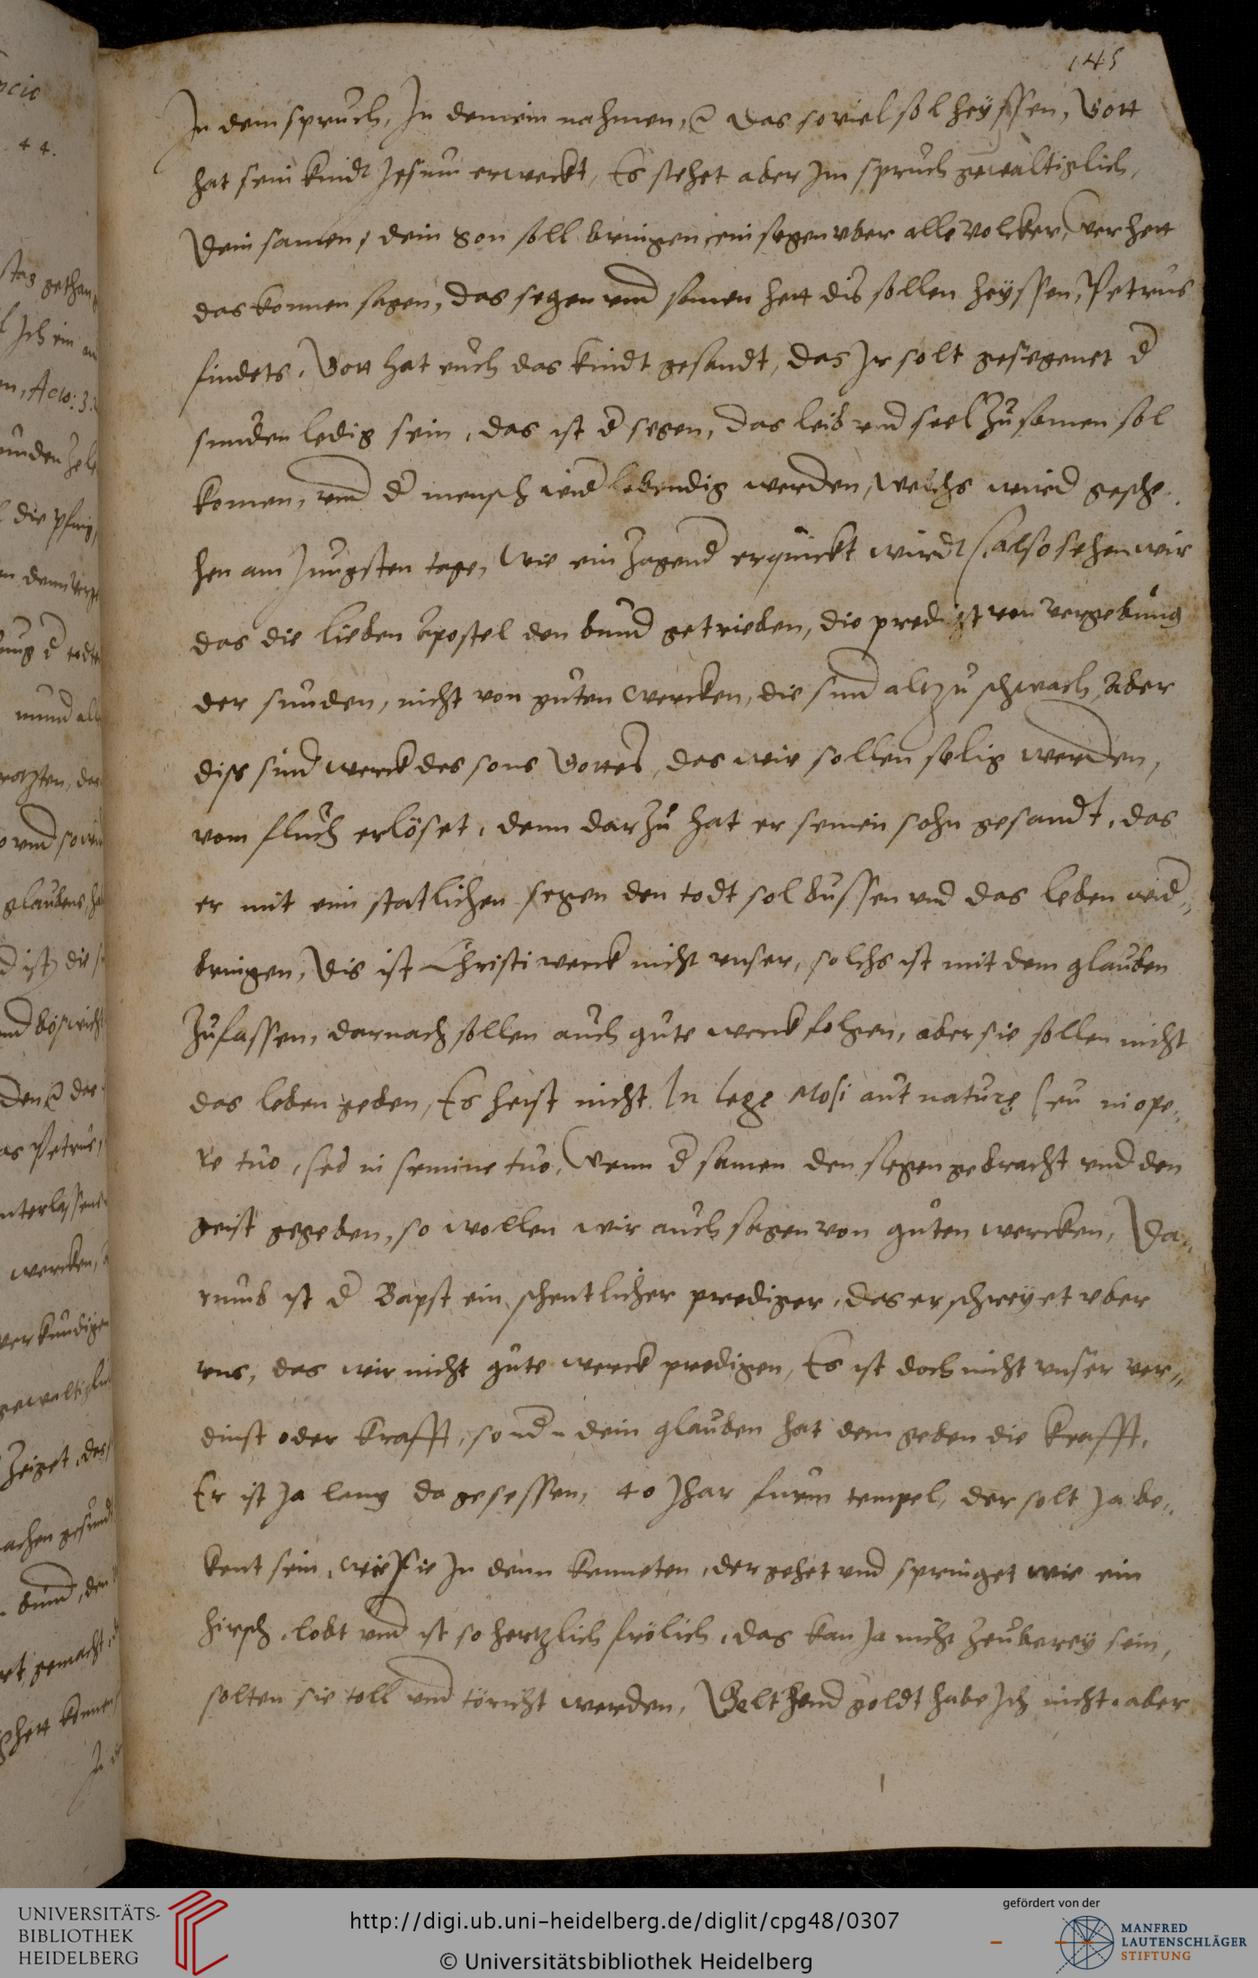 145
In dem spruch, In deinem nahmen, das so viel sol heyssen, Gott
hat sein kindt Jesum erweckt, Es stehet aber Im spruch gewaltiglich,
Dein samen, dein son soll bringen ein segen vber alle volcker, Wer hett
das konnen sagen, das segen vnd samen hett dis sollen heyssen, Petrus
findets, Gott hat euch das kindt gesandt, das Ir solt gesegenet d
sunden ledig sein, das ist d segen, das leib vnd seel zusamen sol
komen, vnd d mensch wid lebendig werden, welchs wird gesche
hen am Jungsten tage, wie ein zagend erquickt wirdt, also sehen wir
das die lieben Apostel den bund getrieben, die predigt von vergebung
der sunden, nicht von guten wercken, die sind altzu schwach, Aber
diss sind werck des sons Gottes, das wir sollen selig werden,
vom fluch erlöset, denn darzu hat er seinen sohn gesandt, das
er mit eim statlichen segen den todt sol bussen vnd das leben wid„
bringen, Dis ist Christi werck nicht vnser, solchs ist mit dem glauben
zufassen, darnach sollen auch gute werck folgen, aber sie sollen nicht
das leben geben, Es heist nicht In lege Mosi aut naturę seu in ope„
re tuo, sed in semine tuo, Wenn d samen den segen gebracht vnd den
geist gegeben, so wollen wir auch sagen von guten wercken, Da„
rumb ist d Bapst ein schentlicher prediger, das er schreyet vber
vns, das wir nicht gute werck predigen, Es ist doch nicht vnser ver„
dinst oder krafft, sondn dein glauben hat dem geben die krafft,
Er ist Ja lang da gesessen, 40 Jhar furm tempel, der solt Ja be„
kent sein, wie sie In denn kenneten, der gehet vnd springet wie ein
hirsch, lobt vnd ist so hertzlich frölich, das kan Ja nicht zeuberey sein,
solten sie toll vnd töricht werden, Gelt vnd goldt habe Ich nicht, aber
UNIVERSITÄTS-
BIBLIOTHEK
HEIDELBERG
http://digi.ub.uni-heidelberg.de/diglit/cpg48/0307
© Universitätsbibliothek Heidelberg
gefördert von der
MANFRED
LAUTENSCHLÄGER
STIFTUNG